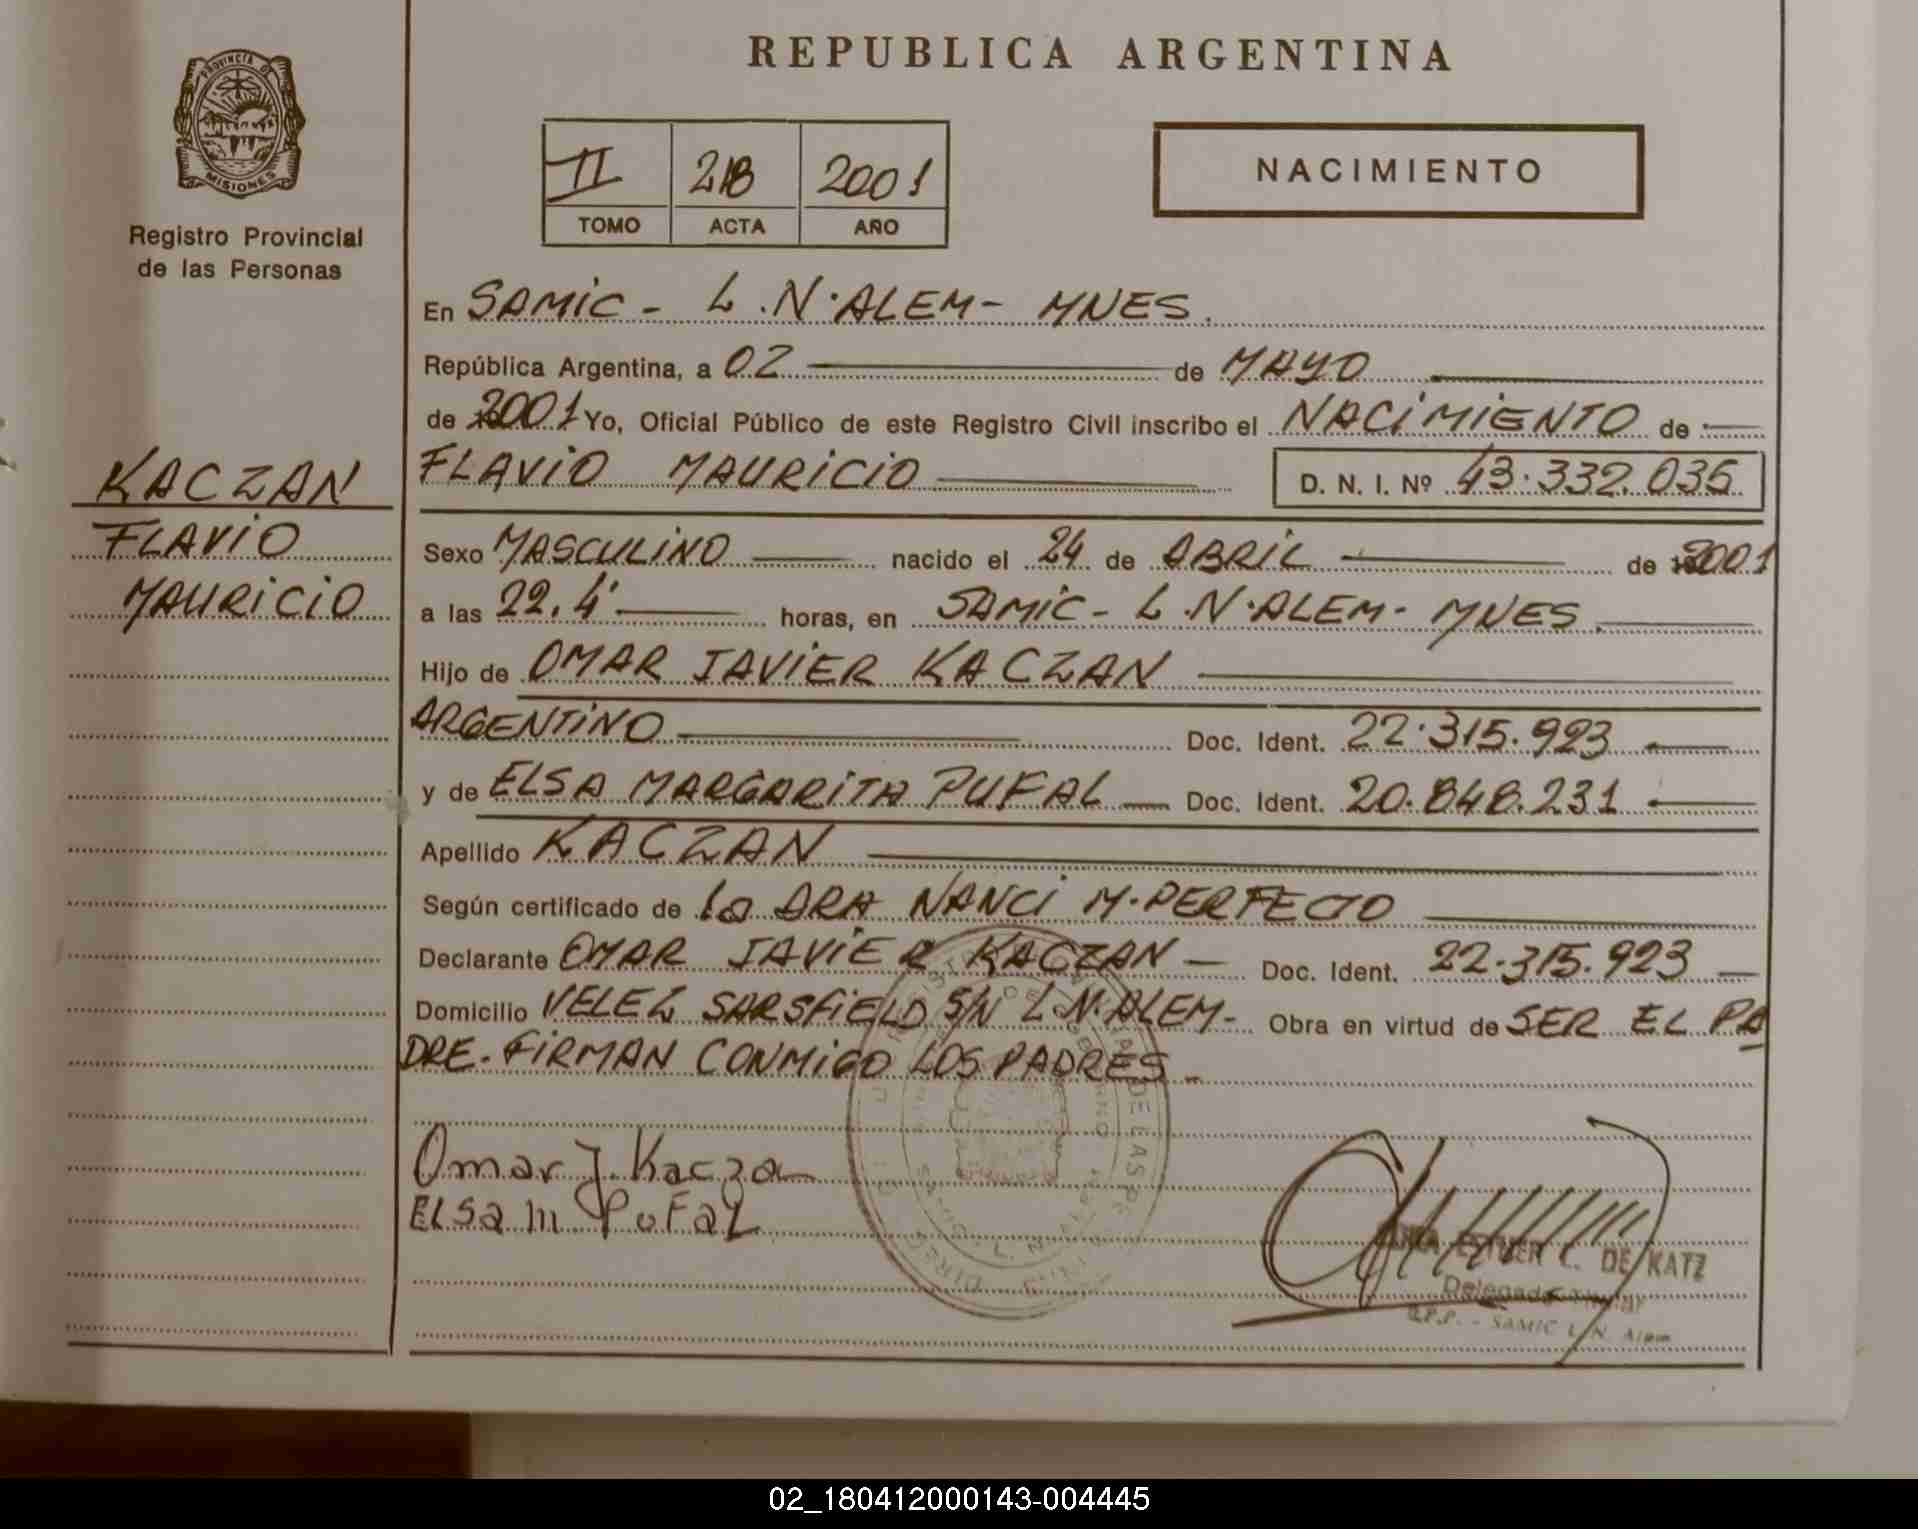 REPUBLICA ARGENTINA
PROVINCIA DE
MISIONES
Registro Provincial
de las Personas
II 218 2001
TOMO ACTA AÑO
NACIMIENTO
En SAMIC - L.N.ALEM - MNES.
República Argentina, a 02 de MAYO
de 2001 Yo, Oficial Público de este Registro Civil inscribo el NACIMIENTO de
FLAVIO MAURICIO D. N. I. Nº 43.332.035
KACZAN
FLAVIO
MAURICIO
Sexo MASCULINO nacido el 24 de ABRIL de 2001
a las 22,4' horas, en SAMIC - L.N.ALEM - MNES.
Hijo de OMAR JAVIER KACZAN
ARGENTINO Doc. Ident. 22.315.923
y de ELSA MARGARITA PUFAL Doc. Ident. 20.848.231
Apellido KACZAN
Según certificado de la DRA NANCI M. PERFECTO
Declarante OMAR JAVIER KACZAN - Doc. Ident. 22.315.923
Domicilio VELEZ SARSFIELD S/N L.N.ALEM - Obra en virtud de SER EL PA
DRE. FIRMAN CONMIGO LOS PADRES -
Omar J. Kaczan
ELSa M PuFaL
ESTHER C. DE KATZ
Delegada Titular
SAMIC L.N. Alem
02_180412000143-004445